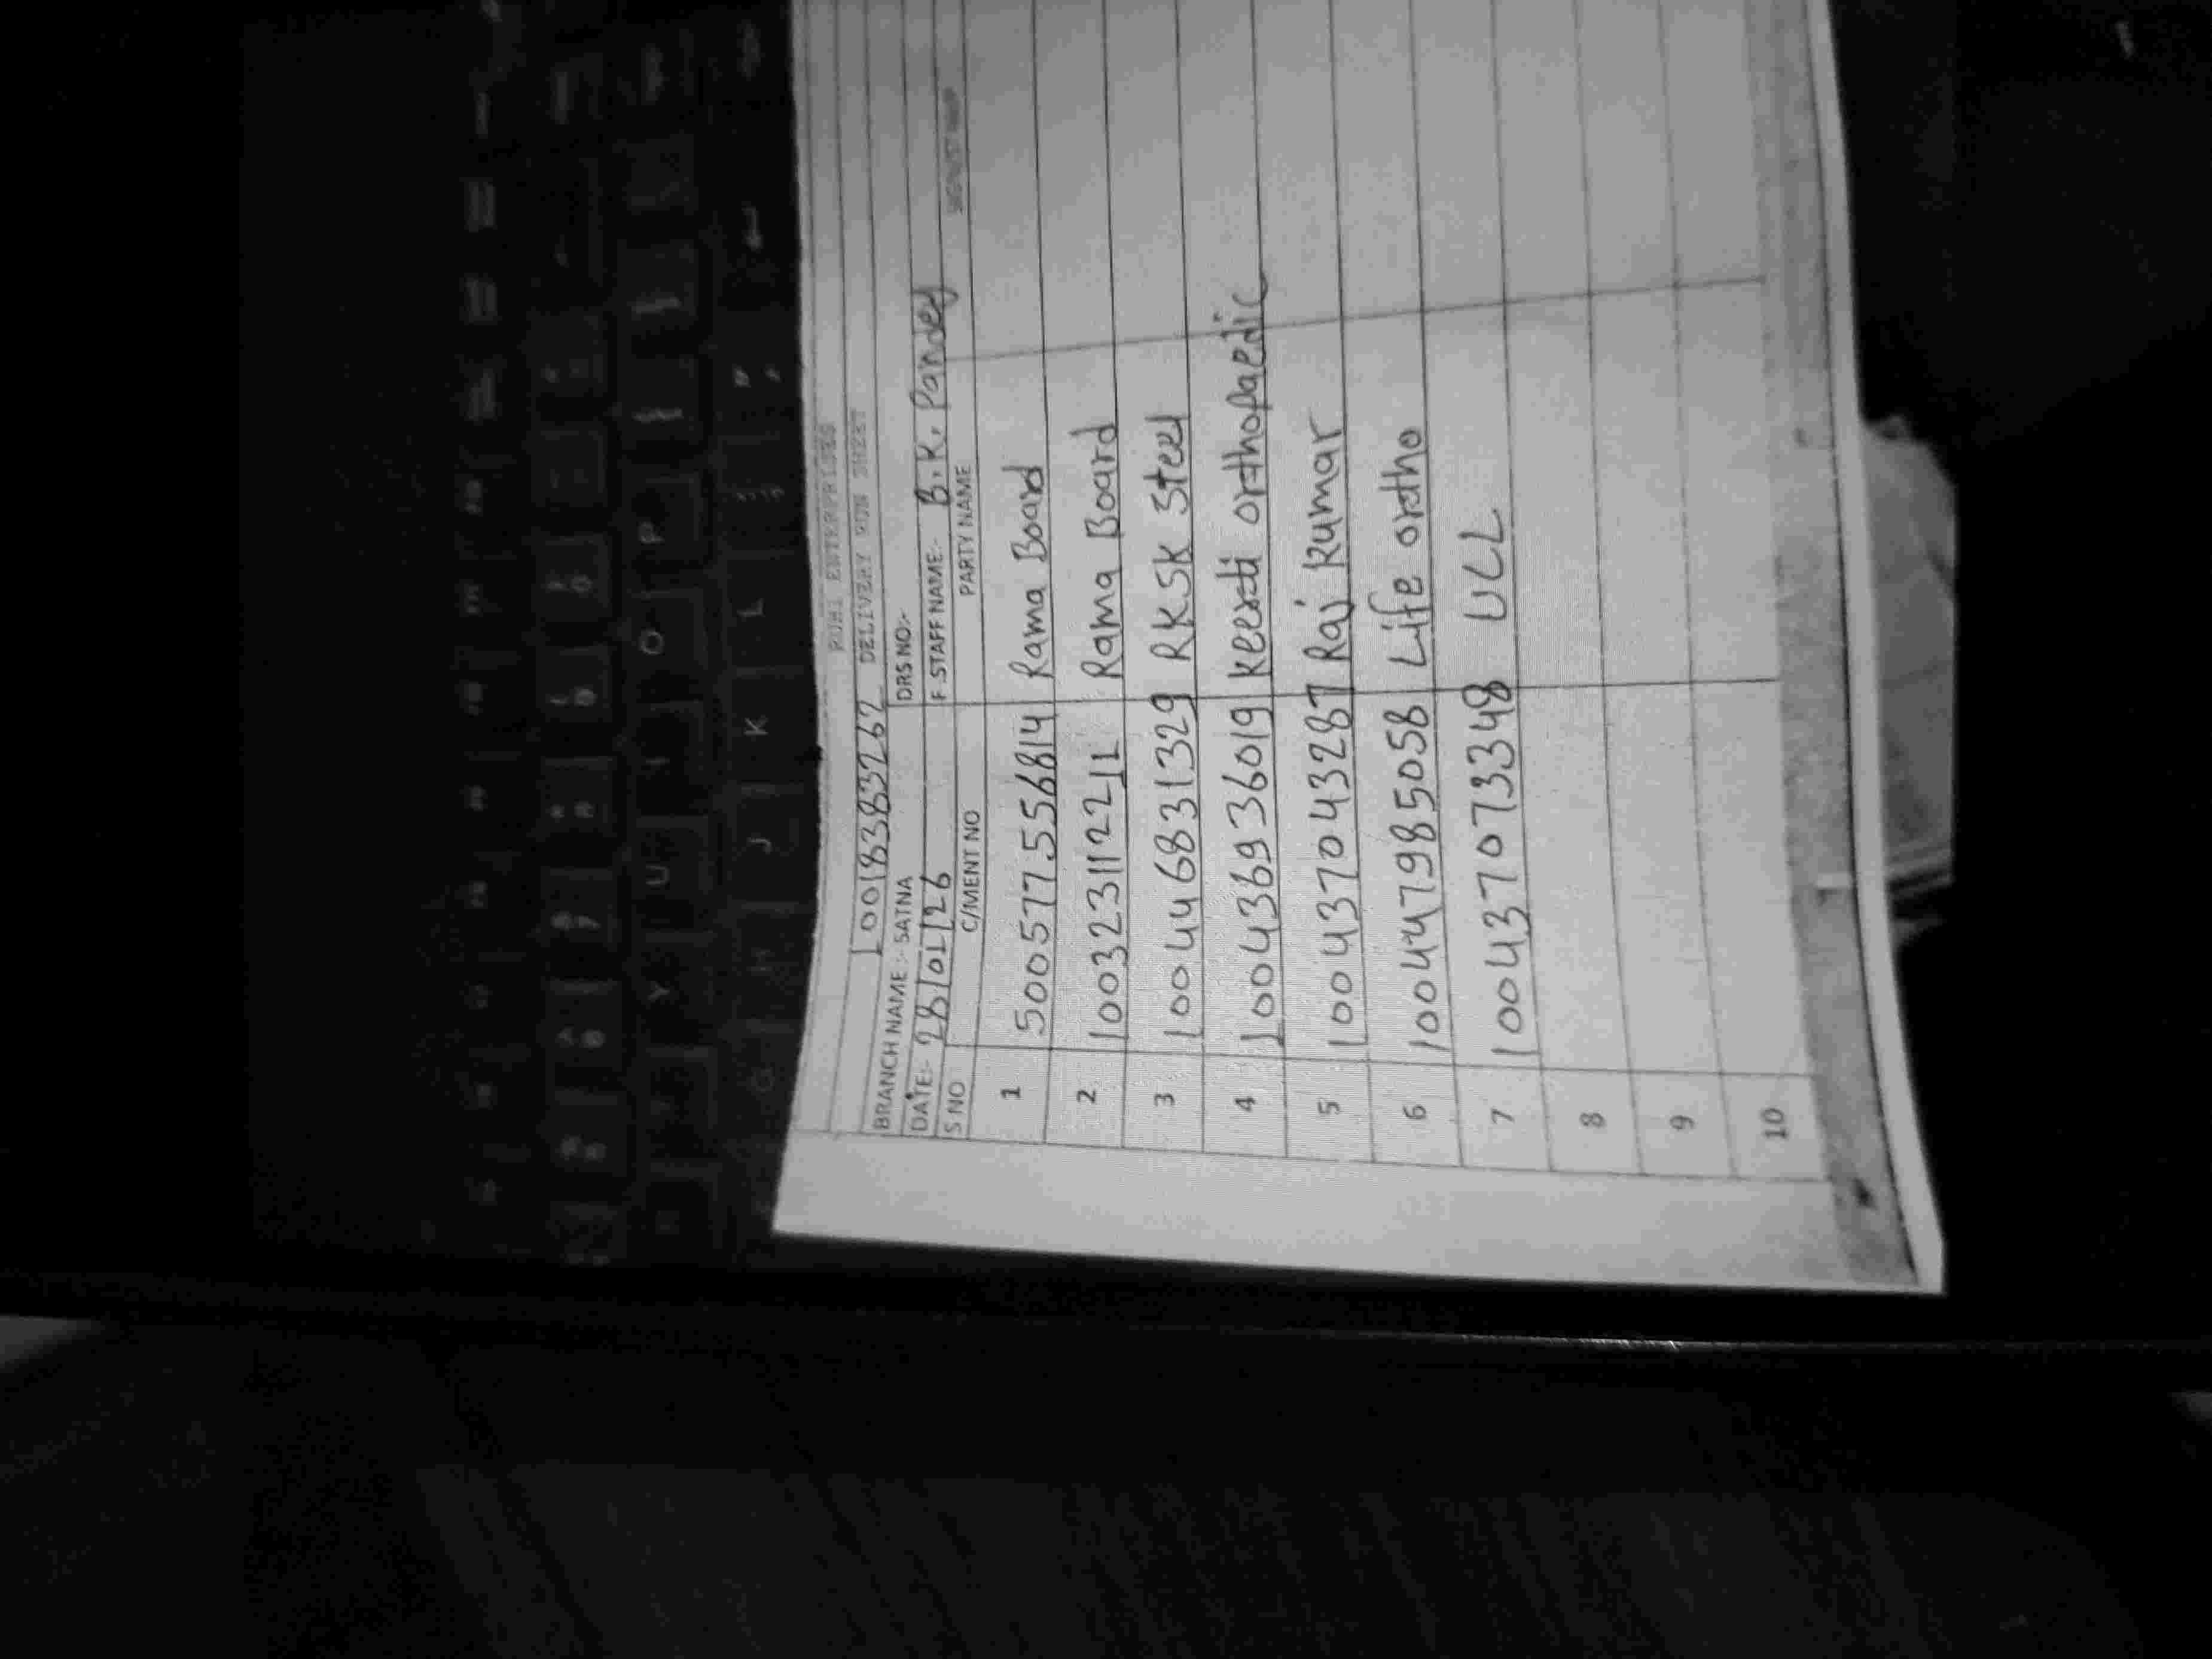 ENTERPRISES
100183832262 DELIVERY RUN SHEET
BRANCH NAME :- SATNA DRS NO:-
DATE:- 28/01/26 F.STAFF NAME:- B.K. Pandey
S NO C/MENT NO PARTY NAME
1 500577556814 Rama Board
2 100323112211 Rama Board
3 100446831329 RKSK Steel
4 100436936019 Keerti orthopaedic
5 100437043287 Raj Kumar
6 100447985058 Life ortho
7 100437073348 UCL
8
9
10
Y U I O P
H J K L